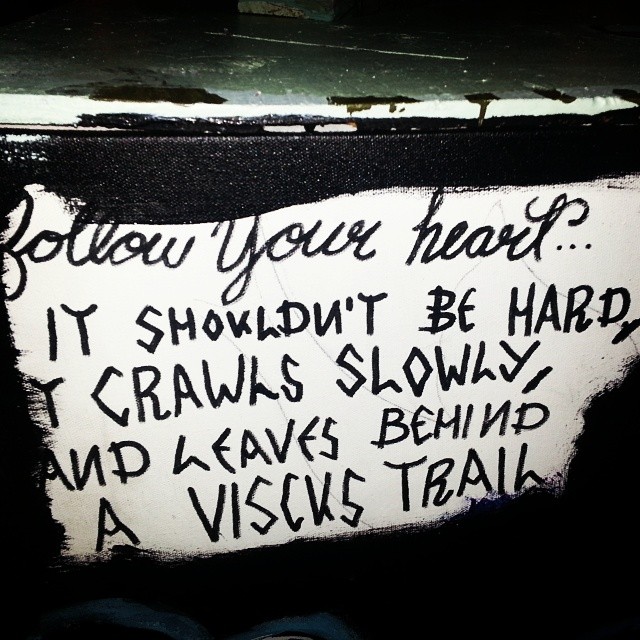 follow your heart...
IT SHOULDN'T BE HARD,
T CRAWLS SLOWLY,
AND LEAVES BEHIND
A VISCUS TRAIL